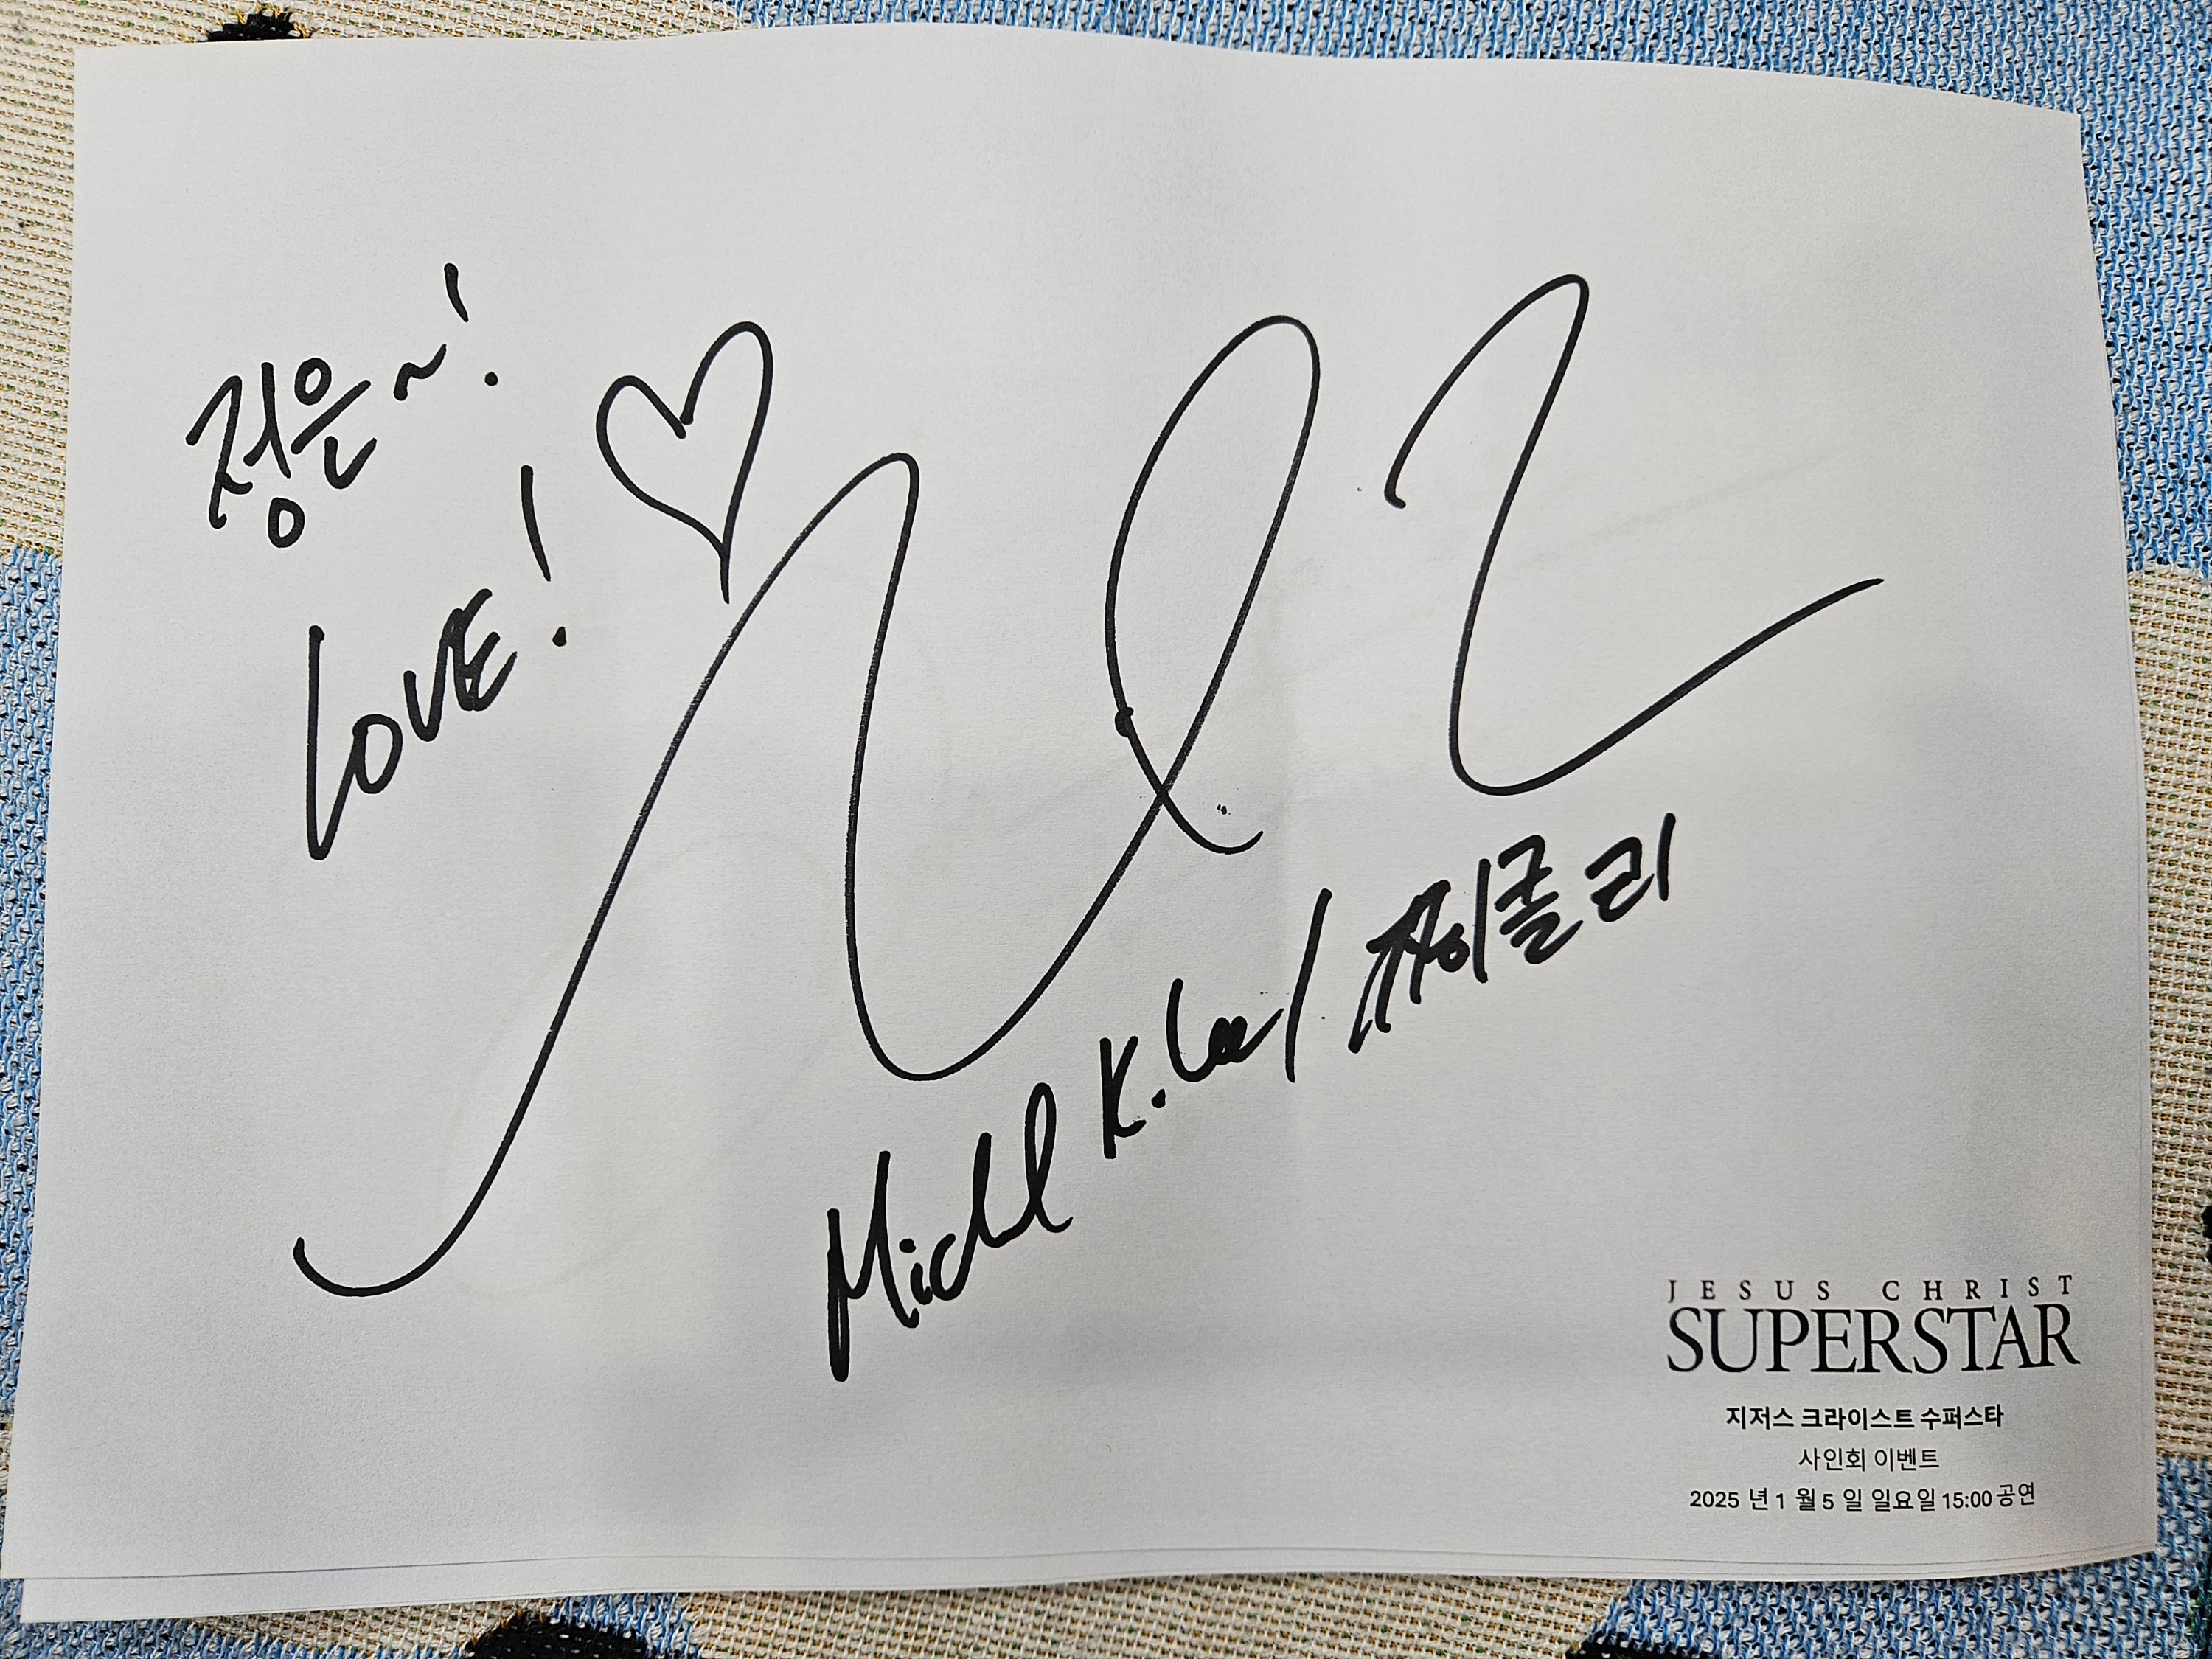 정은~!
LOVE!
Michael K. Lee / 마이클리
JESUS CHRIST
SUPERSTAR
지저스 크라이스트 수퍼스타
사인회 이벤트
2025 년 1 월 5 일 일요일 15:00 공연